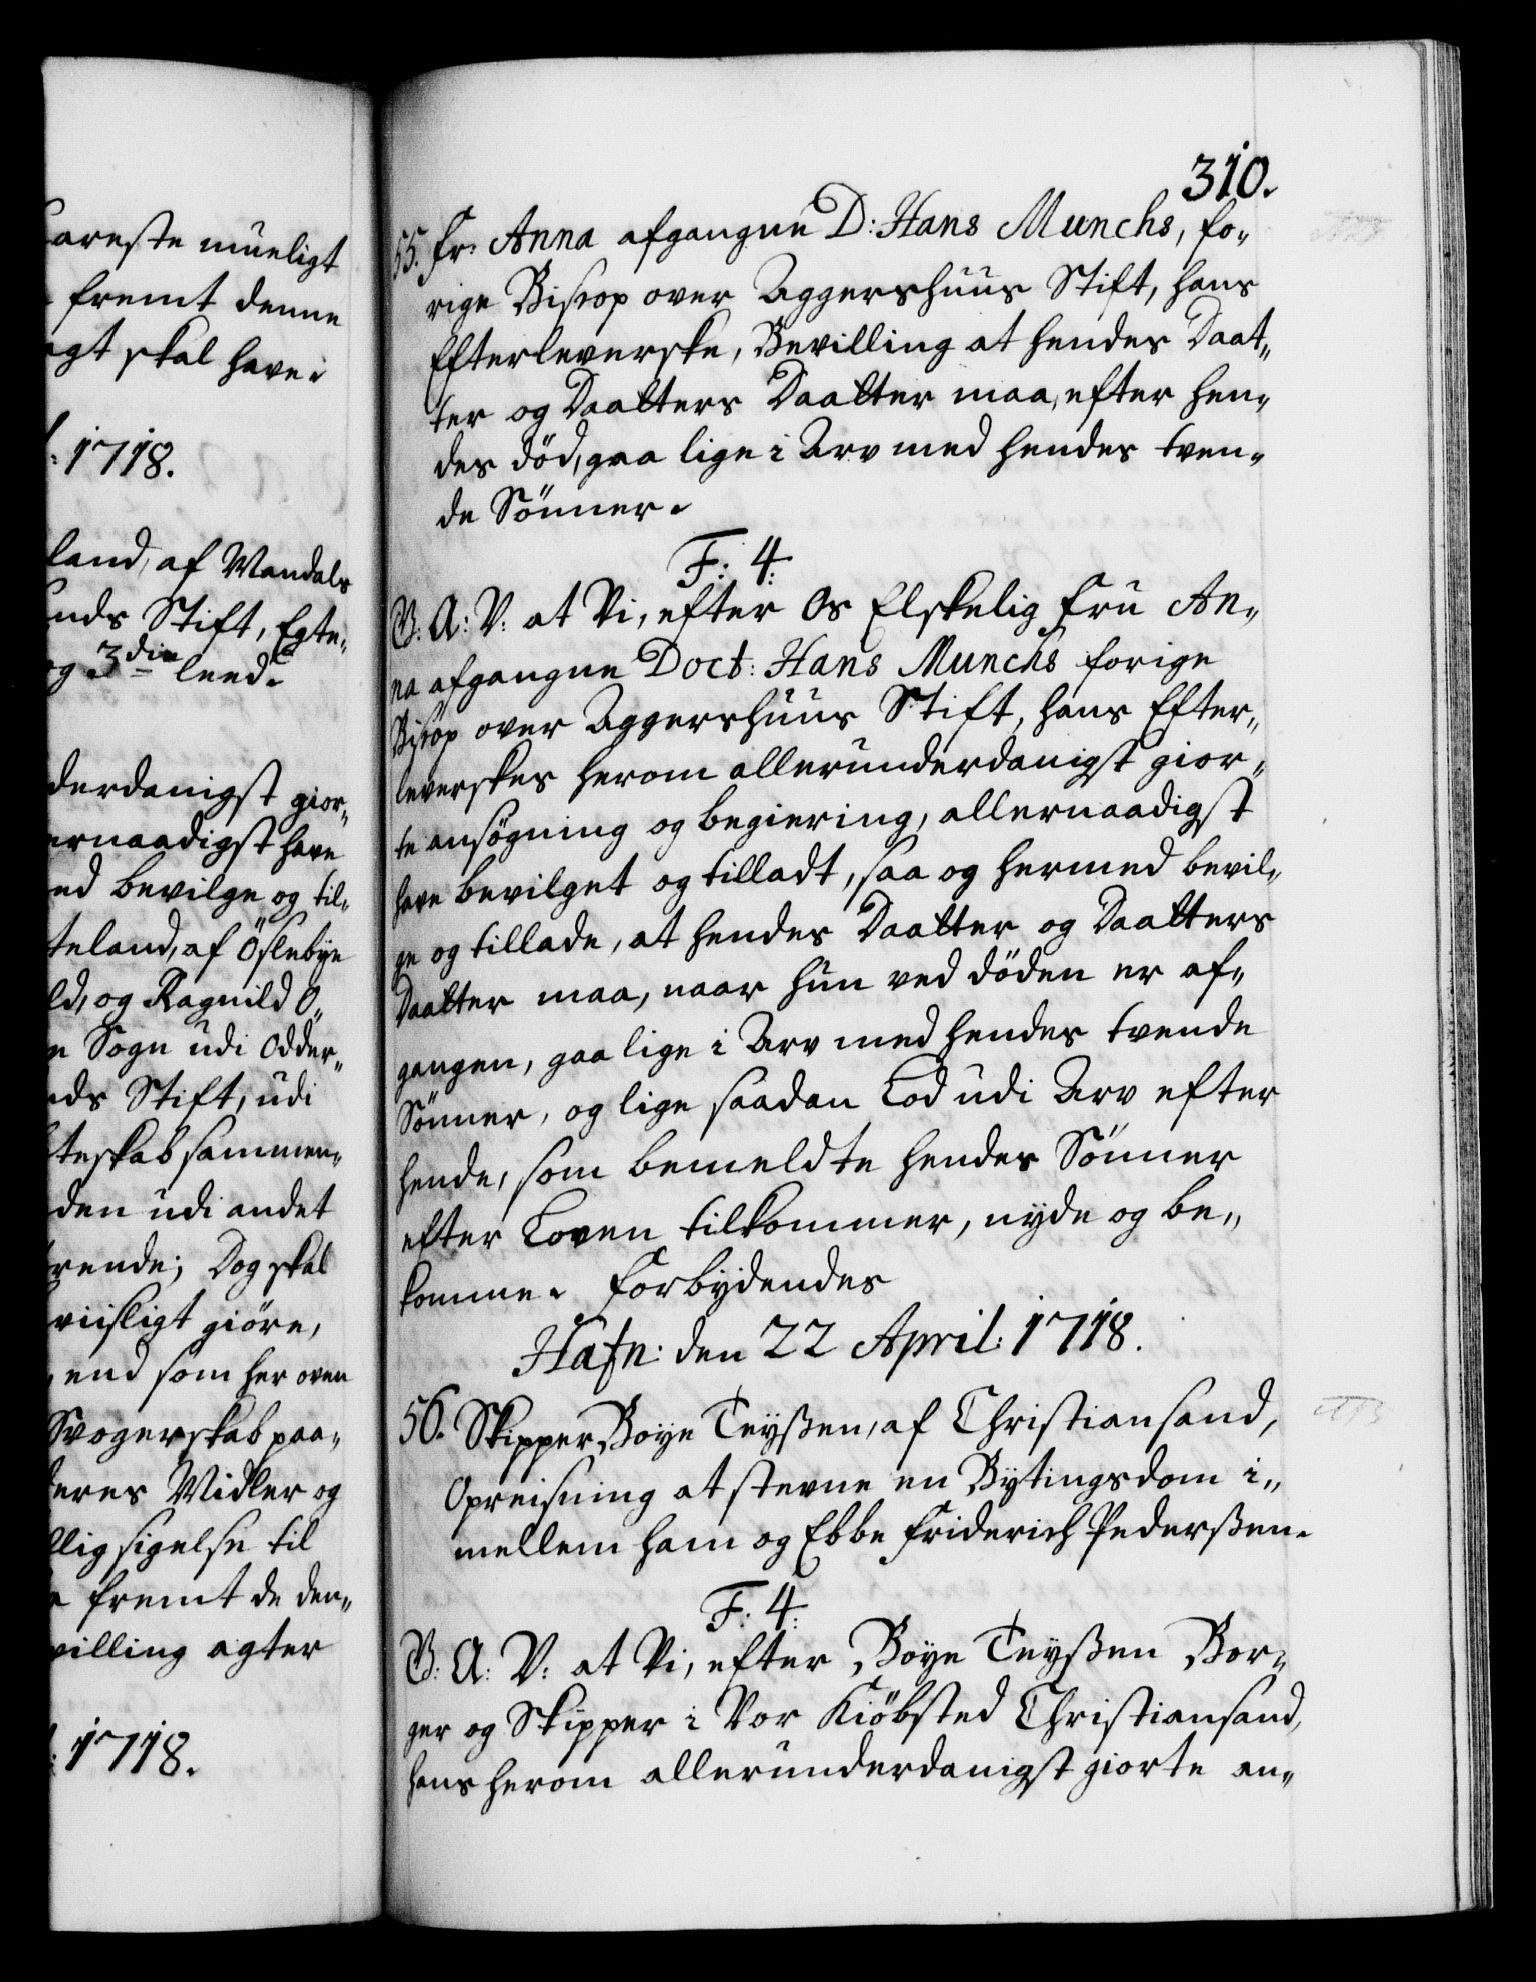 areste mueligt
fremt denne
agt skal have.
: 1718.
land, af Wandals
nds Stift, Egte„
og 3die leed.
derdanigst gior„
ernaadigst have
ed bevilge og til„
teland, af Öslebye
ld, og Ragnild O„
n Sogn udi Odder„
nds Stift, udi
teskab sammen„
den udi andet
rende; Dog skal
viisligt giöre,
end som her oven
Svogerskab paa„
deres Midler og
llig sigelse til
fremt de den„
villing agter
: 1718.
310.
55. Fr: Anna afgangne D: Hans Munchs, fo„
rige Biscop over Aggershuus Stift, hans
Efterleverske, Bevilling at hendes Daat„
ter og Daatters Daatter maa, efter hen„
des död, gaa lige i Arv med hendes tven„
de Sönner.
F: 4:
G: A: V: at Vi, efter Os Elskelig Fru An„
na afgangne Doct: Hans Munchs forige
Biscop over Aggershuus Stift, hans Efter„
leverskes herom allerunderdanigst gior„
te ansögning og begiering, allernaadigst
have bevilget og tilladt, saa og hermed bevil„
ge og tillade, at hendes Daatter og Daatters
Daatter maa, naar hun ved döden er af„
gangen, gaa lige i Arv med hendes tvende
Sönner, og lige saadan Lod udi Arv efter
hende, som bemeldte hendes Sönner
efter Loven tilkommer, nyde og be„
komme. Forbydendes
Hafn: den 22 April: 1718.
56. Skipper Boye Teyßen, af Christiansand,
Opreisning at stevne en Bytingsdom i„
mellem ham og Ebbe Friderich Pederßen.
F: 4:
G: A: V: at Vi, efter Boye Teyßen Bor„
ger og Skipper i Vor Kiöbsted Christiansand,
hans herom allerunderdanigst giorte an„